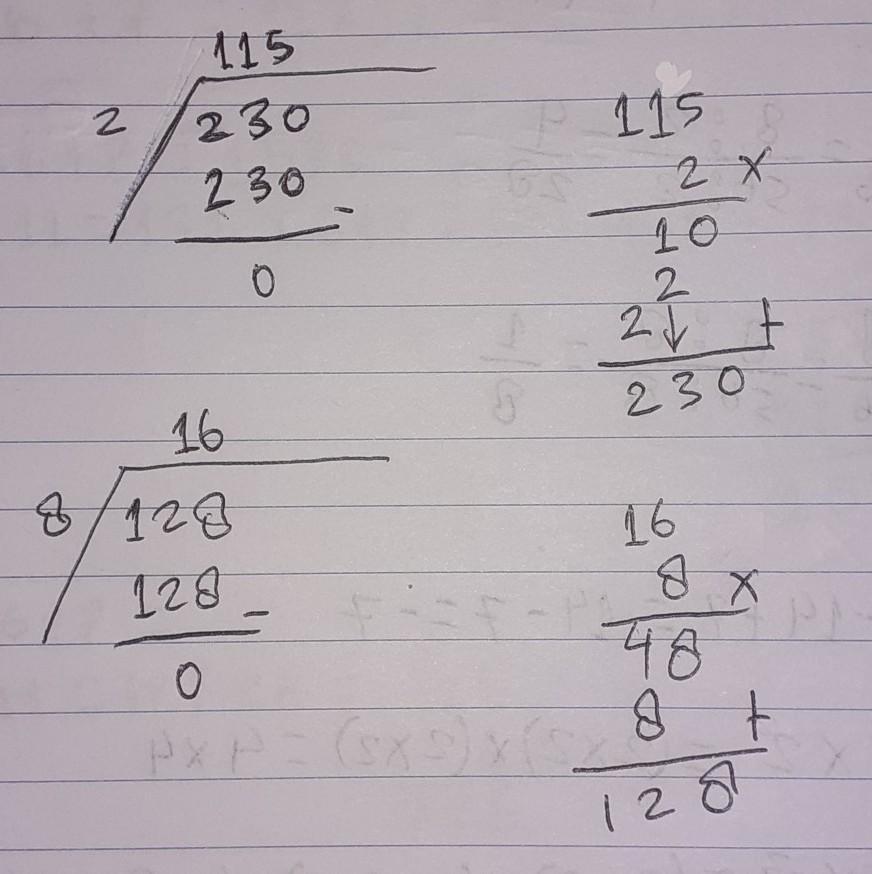 115
2 230
230 -
0
115
2 x
10
2
2↓ +
230
16
8 128
128 -
0
16
8 x
48
8 +
128